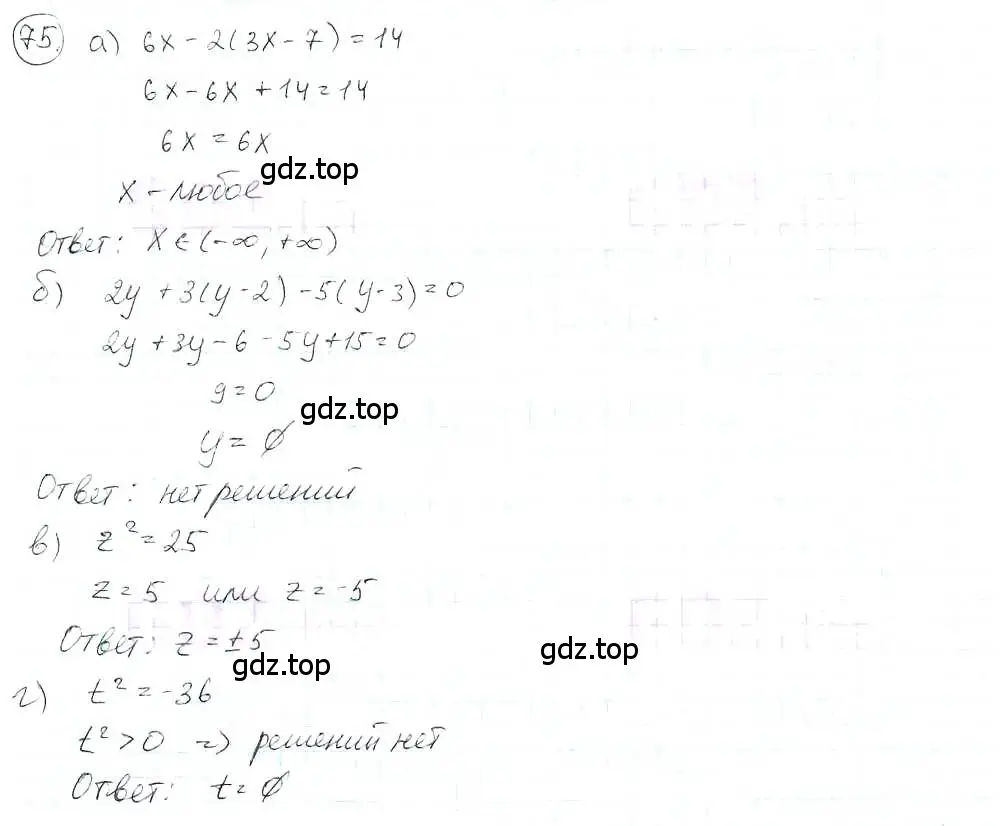 75. а) 6x - 2(3x - 7) = 14
6x - 6x + 14 = 14
6x = 6x
gdz.top
x - любое
Ответ: x ∈ (-∞, +∞)
б) 2y + 3(y - 2) - 5(y - 3) = 0
2y + 3y - 6 - 5y + 15 = 0
9 = 0
gdz.top
y = ∅
Ответ: нет решений
в) z² = 25
z = 5 или z = -5
Ответ: z = ±5
gdz.top
gdz.top
г) t² = -36
t² > 0 => решений нет
Ответ: t = ∅